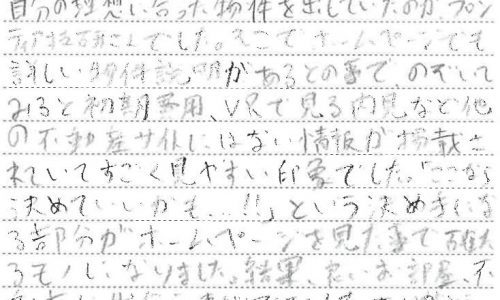 自分の理想に合った物件を出していたのが、フロン
ティア技研さんでした。そこでホームページでも
詳しい物件説明があるとの事でのぞいて
みると初期費用、VRで見る内見など他
の不動産サイトにはない情報が掲載さ
れていてすごく見やすい印象でした。「ここなら
決めていいかも…!!」という決めきにな
る部分がホームページを見た事で確たる
るモノになりました。結果、良いお部屋、不